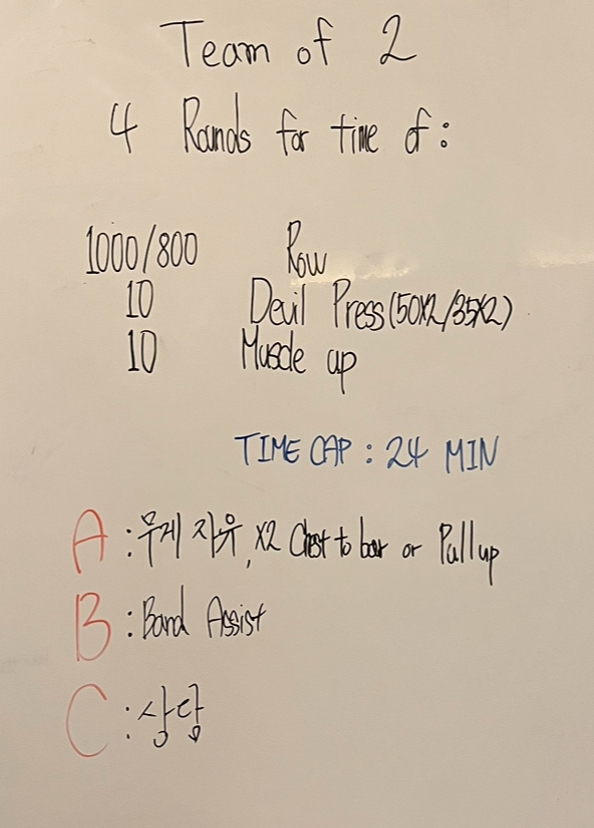 Team of 2
4 Rounds for time of:
1000/800 Row
10 Devil Press (50X2/35X2)
10 Muscle up
TIME CAP : 24 MIN
A : 무게 자유, X2 Chest to bar or Pull up
B : Band Assist
C : 상담